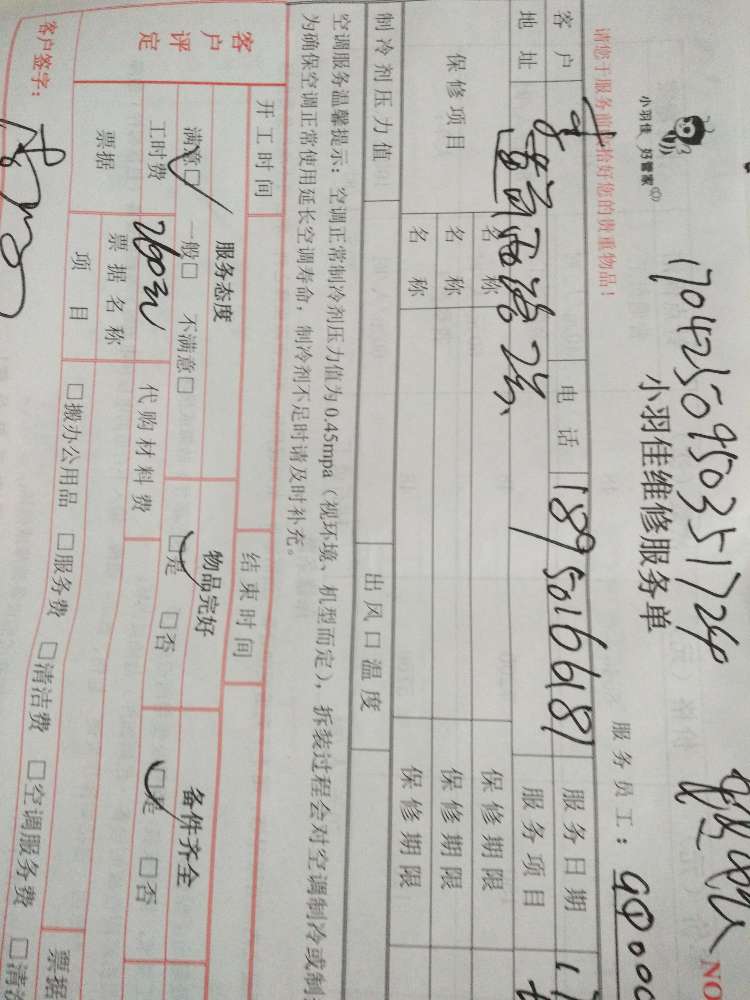 小羽佳 好管家
1704250950351724
小羽佳维修服务单
NO
请您于服务前收拾好您的贵重物品！
服务员工：
客户 电话 18950166181 服务日期
地址 服务项目
保修项目 名称 保修期限
名称 保修期限
名称 保修期限
制冷剂压力值 出风口温度
空调服务温馨提示：空调正常制冷剂压力值为0.45mpa（视环境、机型而定），拆装过程会对空调制冷或制
为确保空调正常使用延长空调寿命，制冷剂不足时请及时补充。
开工时间 结束时间
客户评定 服务态度 物品完好 备件齐全
满意□ 一般□ 不满意□ □是 □否 □是 □否
工时费 260元 代购材料费
票据 票据名称
项目 □搬办公用品 □服务费 □清洁费 □空调服务费 □清洁
票据
客户签字：